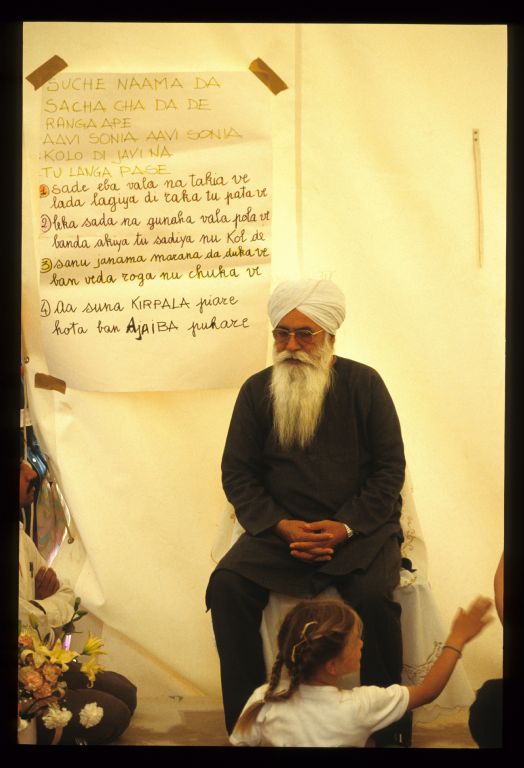 SUCHE NAAMA DA
SACHA CHA DA DE
RANGA APE
AAVI SONIA AAVI SONIA
KOLO DI JAVI NA
TU LANGA PASE
1 sade eba vala na takia ve
lada lagiya di raka tu pata ve
2 leka sada na gunaha vala pola ve
banda akiya tu sadiya nu Kol de
3 sanu janama marana da duka ve
ban veda roga nu chuka ve
4) Aa suna KIRPALA piare
hota ban AJAIBA pukare